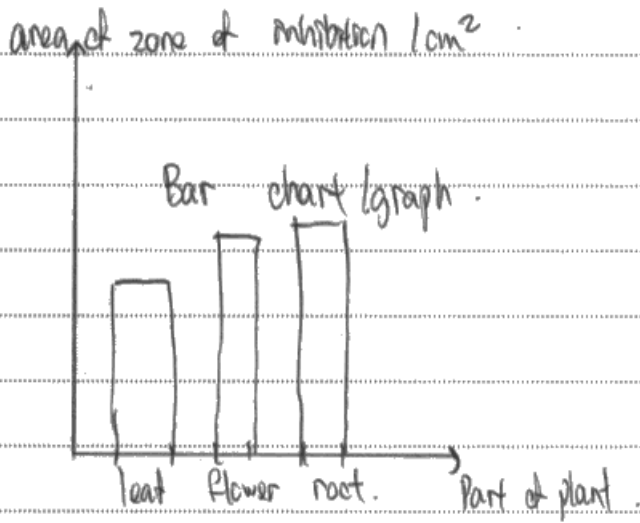 area of zone of inhibition / cm²
Bar chart / graph.
leaf flower root. Part of plant.